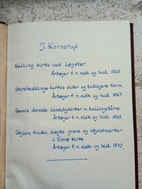 J. Kornerup
Galling kirke ved Løgstør.
Årbøger f. n. oldk. og hist. 1869.
Uberehoddinge kirkes alder og tidligere form.
Årbøger f. n. oldk. og hist. 1869.
Gamle danske landsbykirker m. bullingetårne.
Årbøger f. n. oldk og hist. 1869.
Stejle Hvides slægts grave og skjoldmærker
i Sorø kirke.
Årbøger f. n. oldk og hist. 1877.